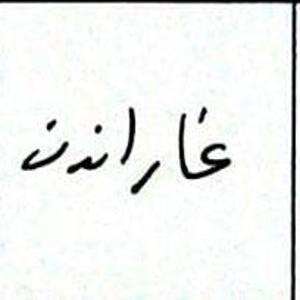 غاراندن